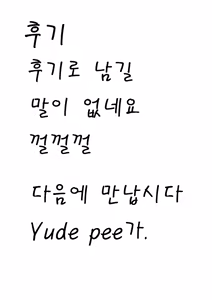 후기
후기로 남길
말이 없네요
껄껄껄
다음에 만납시다
Yude pee가.